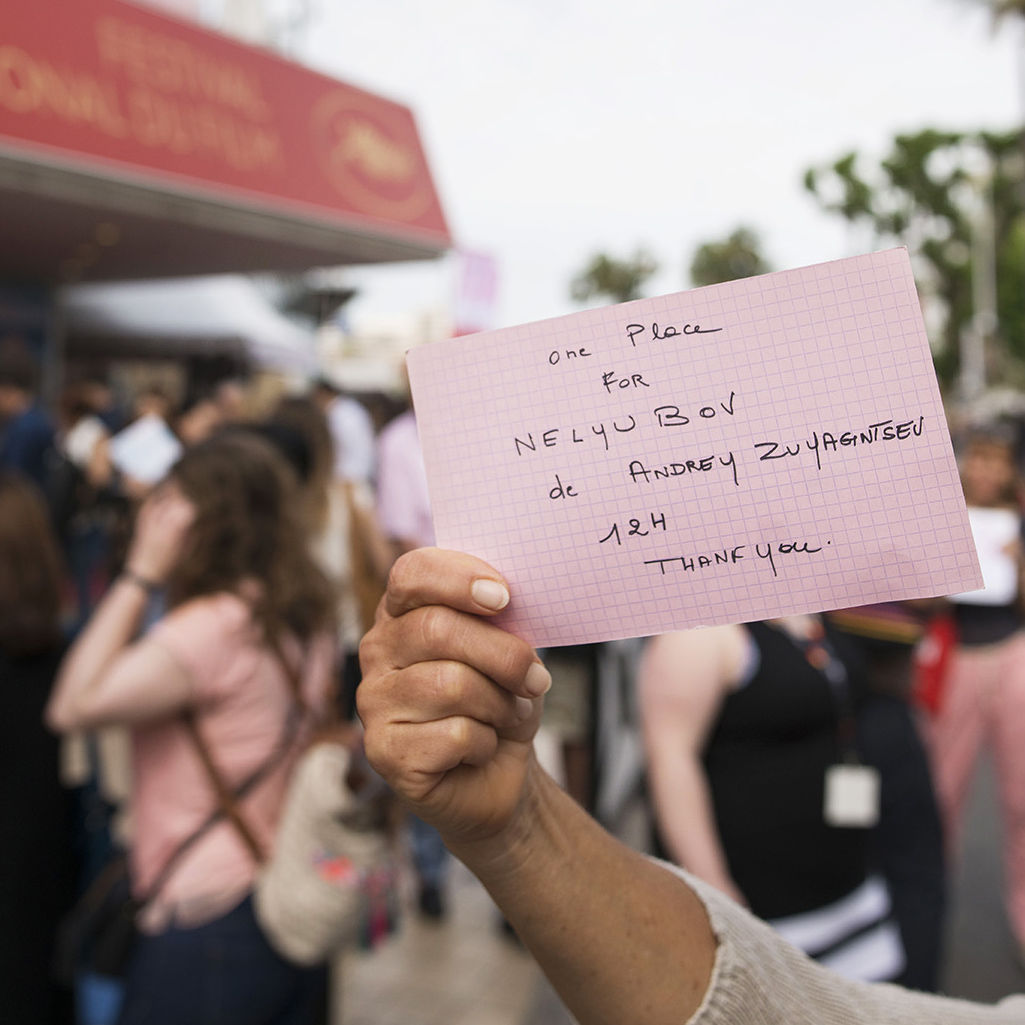 FESTIVAL
ONAL DU FILM
One Place
FOR
NELYU BOV
de ANDREY ZUYAGINTSEV
12H
THANK YOU.